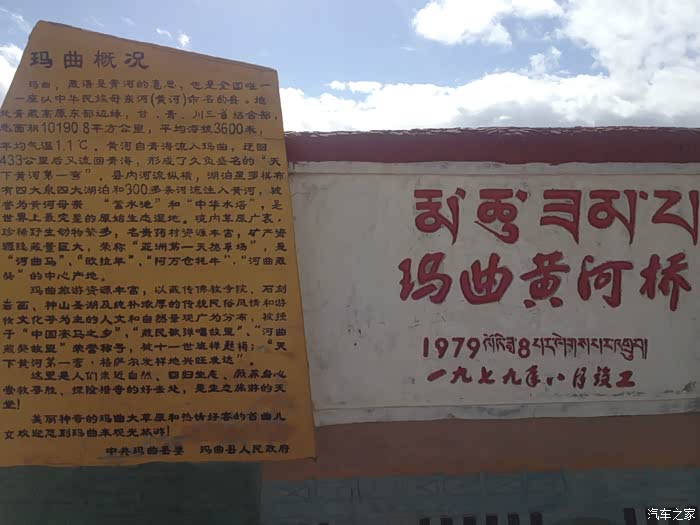 玛曲概况
玛曲，藏语是黄河的意思，也是全国唯一
一座以中华民族母亲河(黄河)命名的县。地
处青藏高原东部边缘，甘、青、川三省结合部，
总面积10190.8平方公里，平均海拔3600米，
年均气温1.1℃。黄河自青海流入玛曲，迂回
433公里后又流回青海，形成了久负盛名的“天
下黄河第一弯”。县内河流纵横，湖泊星罗棋布
有四大泉四大湖泊和300多条河流注入黄河，被
誉为黄河母亲“蓄水池”和“中华水塔”，是
世界上最完整的原始生态湿地。境内草原广袤，
珍稀野生动物繁多，名贵药材资源丰富，矿产资
源隐藏量巨大，荣称“亚洲第一天然草场”，是
“河曲马”、“欧拉羊”、“阿万仓牦牛”、“河曲藏
獒”的中心产地。
玛曲旅游资源丰富，以藏传佛教学院、石刻
岩画、神山圣湖及纯朴浓厚的传统民俗风情和游
牧文化等为主的人文和自然景观广为分布，被授
于“中国赛马之乡”、“藏民歌弹唱故里”、“河曲
藏獒故里”荣誉称号，被十一世班禅题词：“天
下黄河第一弯，格萨尔发祥地兴旺发达”
这里是人们亲近自然、回归生态、陶养身心
崇教寻胜、探险猎奇的好去处，是生态旅游的天
堂！
美丽神奇的玛曲大草原和热情好客的首曲儿
女欢迎您到玛曲来观光旅游！
中共玛曲县委 玛曲县人民政府
玛曲黄河桥
1979 8
一九七九年八月竣工
汽车之家